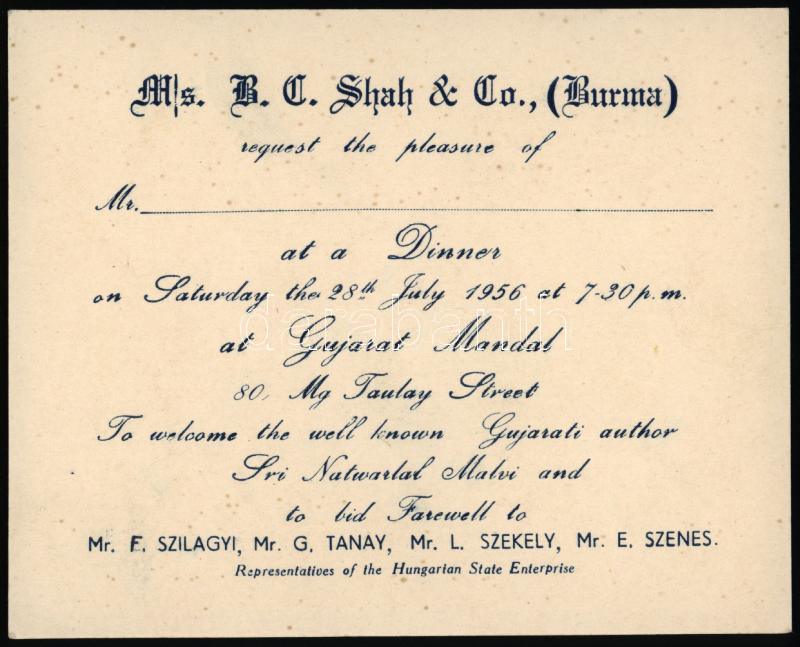 M/s. B. C. Shah & Co., (Burma)
request the pleasure of
Mr.
at a Dinner
on Saturday the 28th July 1956 at 7-30 p.m.
at Gujarat Mandal
80, Mg Taulay Street
To welcome the well known Gujarati author
Sri Natwarlal Malvi and
to bid Farewell to
Mr. F. SZILAGYI, Mr. G. TANAY, Mr. L. SZEKELY, Mr. E. SZENES.
Representatives of the Hungarian State Enterprise
darabanth